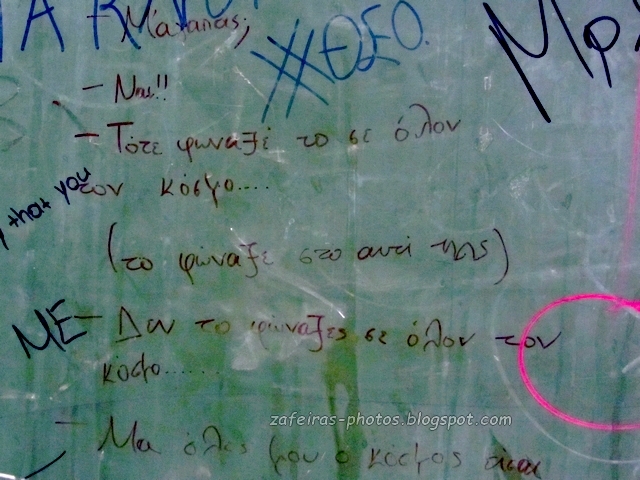 - Μ'αγαπας;
#ΘΣΕΟ.
- Ναι!!
- Τότε φώναξέ το σε όλον
that you
τον κόσμο....
(το φώναξε στο αυτί της)
ΜΕ
- Δεν το φώναξες σε όλον τον
κόσμο.......
zafeiras-photos.blogspot.com
- Μα όλος μου ο κόσμος είσαι